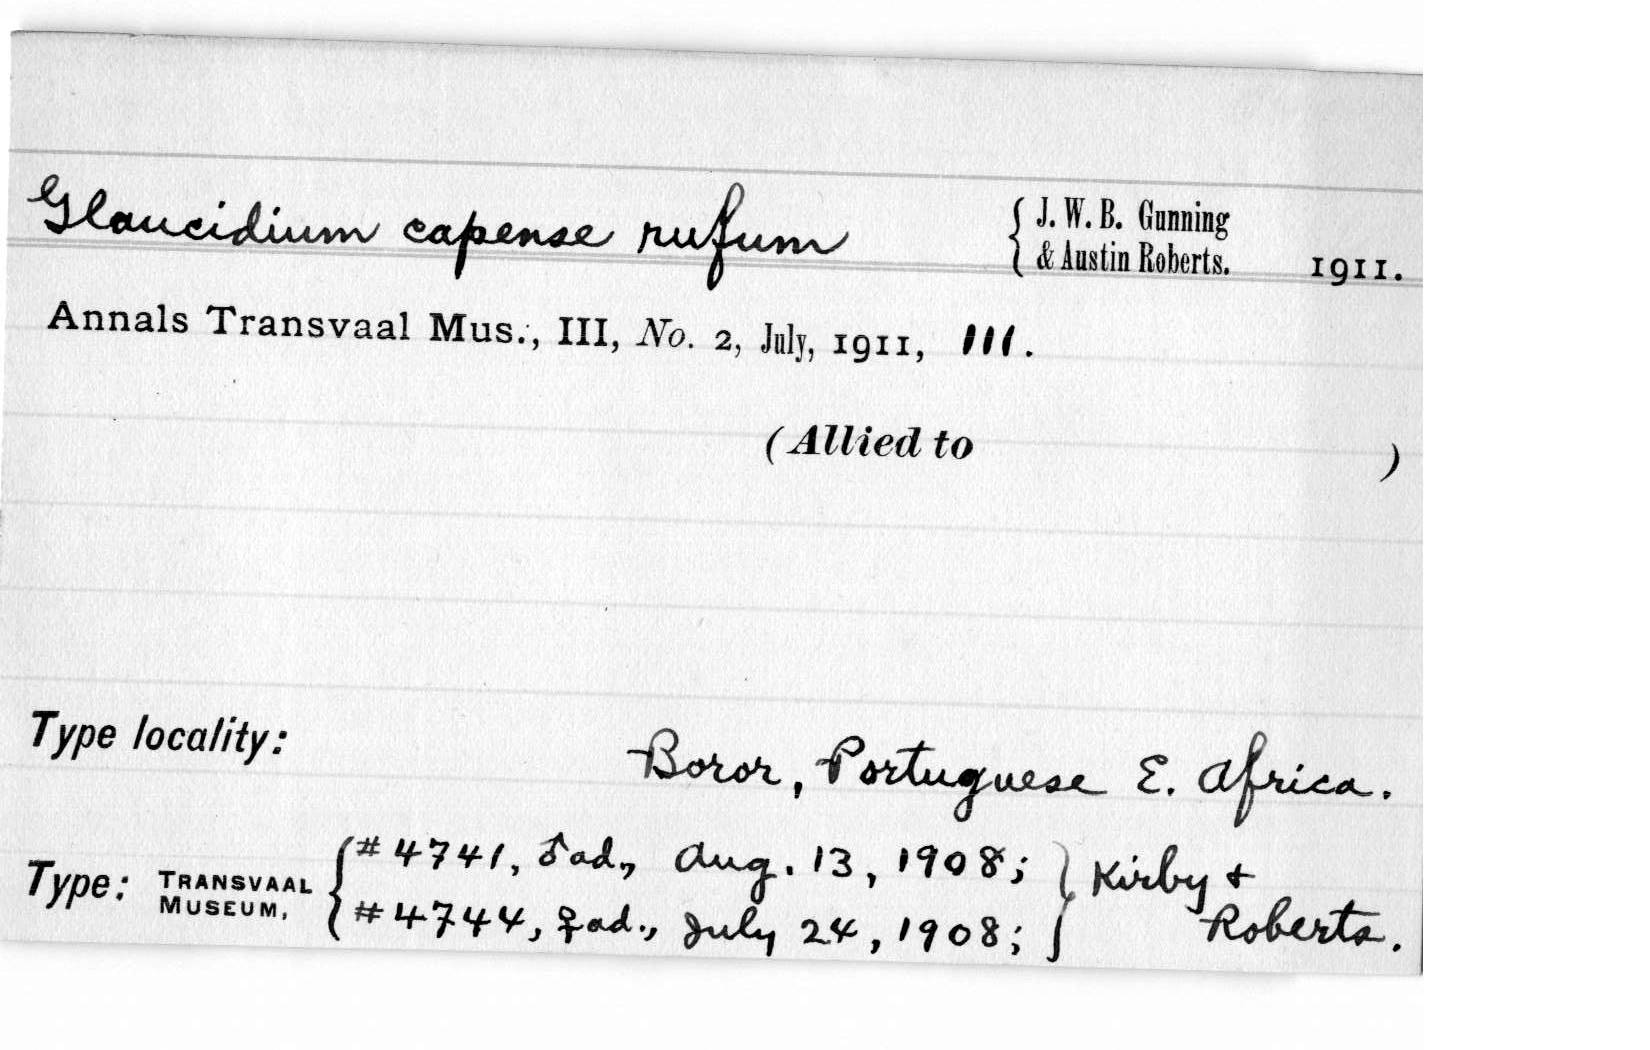 Glaucidium capense rufum { J. W. B. Gunning & Austin Roberts. 1911.
Annals Transvaal Mus., III, No. 2, July, 1911, 111.
(Allied to )
Type locality: Boror, Portuguese E. Africa.
Type: TRANSVAAL MUSEUM, { #4741, ♂ad., Aug. 13, 1908; } Kirby &
#4744, ♀ad., July 24, 1908; } Roberts.